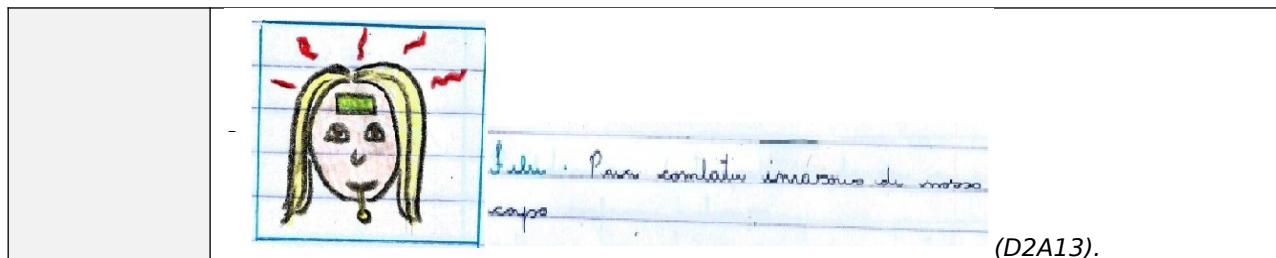 -
Febre. Para combater invasores de nosso
corpo
(D2A13).